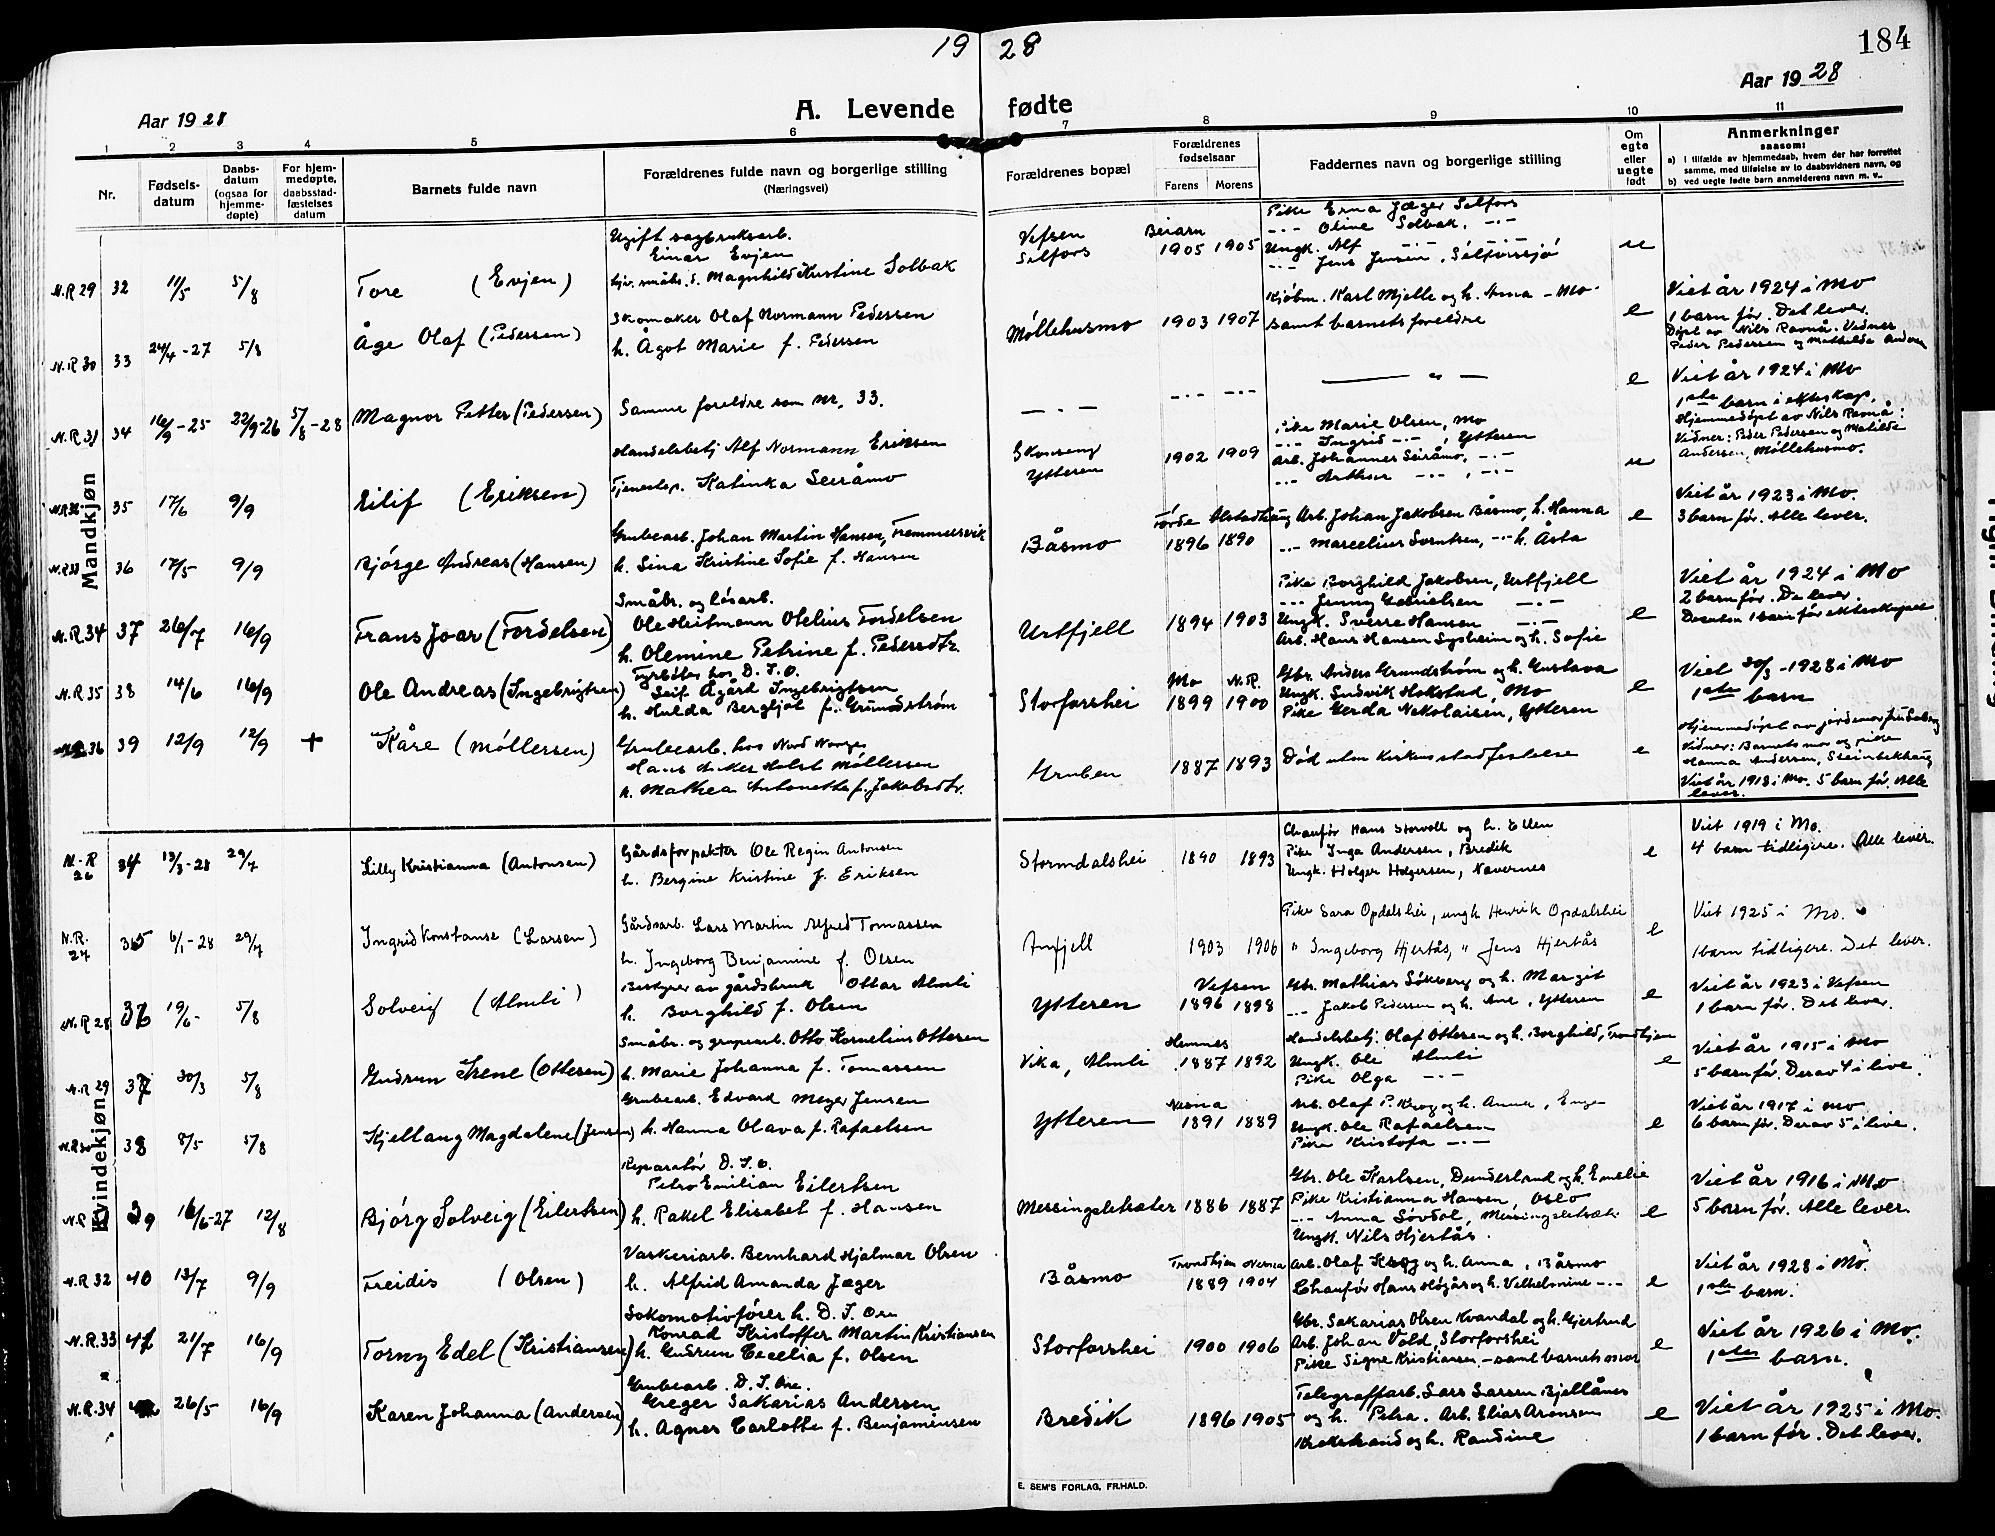 19 28
184
Aar 1928
A. Levende fødte
Aar 1928
1 2 3 4 5 6 7 8 9 10 11
Nr.
Fødsels-
datum
Daabs-
datum
(ogsaa for
hjemme-
døpte)
For hjem-
medøpte,
daabsstad-
fæstelses
datum
Barnets fulde navn
Forældrenes fulde navn og borgerlige stilling
(Næringsvei)
Forældrenes bopæl
Forældrenes
fødselsaar
Farens Morens
Faddernes navn og borgerlige stilling
Om
egte
eller
uegte
født
Anmerkninger
saasom:
a) i tilfælde av hjemmedaab, hvem der har forrettet
samme, med tilføielse av to daabsvidners navn, og
b) ved uegte fødte barn anmelderens navn m. v..
Mandkjøn
N.R 29 32 11/5 5/8 Tore (Evjen)
Ugift sagbruksarb.
Einar Evjen
Magnhild Kristine Solbak
Vefsen
Selfors
Beiarn
1905 1905
Pike Erna Jæger Selfors
-"- Oline Solbak, -"-
Ungk. Alf -"- -"-
-"- Jens Jensen, Selforssjø
u
N.R 30 33 24/4-27 5/8 Åge Olaf (Pedersen)
Skomaker Olaf Normann Pedersen
h. Ågot Marie f. Pedersen
Møllehusmo 1903 1907
Kjøbm. Karl Mjelle og h. Anna - Mo
samt barnets foreldre
e
Viet år 1924 i Mo
1 barn før. Det lever.
Døpt av Nils Ravnå. Vidner
Peder Pedersen og Mathilde Andersen
N.R. 31 34 16/9-25 22/9-26 5/8-28 Magnor Petter (Pedersen)
Samme foreldre som nr. 33.
-"- -"- -"-
e
Viet år 1924 i Mo
1ste barn i ekteskap.
Hjemmedøpt av Nils Ravnå:
Vidner: Peder Pedersen og Matilde
Andersen, Møllehusmo.
35 17/6 9/9 Eilif (Eriksen)
Handelsbetj Alf Normann Eriksen
Tjenestep. Katinka Seiråmo
Skonseng
Ytteren
1902 1909
Pike Marie Olsen, Mo
-"- Ingrid -"-, Ytteren
Arb. Johannes Seiråmo, -"-
-"- Arthur -"-, -"-
u
N.R 33 36 17/5 9/9 Bjørge Andreas (Hansen)
Grubearb. Johan Martin Hansen,
h. Sina Kristine Sofie f. Hansen
Båsmo
Alstadhaug
1896 1890
Arb. Johan Jakobsen Båsmo, h. Hanna
-"- Marcelius Sorntsen, -"- h. Åsta
e
Viet år 1923 i Mo.
3 barn før. Alle lever.
N.R 34 37 26/7 16/9 Frans Joar (Fordelsen)
Småbr. og løsarb.
Ole Heitmann Otelius Fordelsen
h. Olemine Petrine f. Pedersdtr.
Urtfjell 1894 1903
Pike Borghild Jakobsen, Urtfjell
-"- Jenny Gabrielsen -"-
Ungk. Sverre Hansen -"-
Arb. Hans Hansen Sysheim og h. Sofie
e
Viet år 1924 i Mo
2 barn før. De lever.
Desuten 1 barn før ekteskapet
N.R 35 38 14/6 16/9 Ole Andreas (Ingebrigtsen)
Fyrbøter hos D.I.O.
Leif Ågård Ingebrigtsen
h. Hulda Bergljot f. Grundstrøm
Storforshei
Mo N.R.
1899 1900
Gbr. Anders Grundstrøm og h. Gustava
Ungk. Ludvik Hokstad, Mo
Pike Gerda Nikolaisen, Ytteren
e
Viet 30/3-1928 i Mo
1ste barn
36 39 12/9 12/9 + Kåre (Møllersen)
Grubearb. hos Nord Norges
Hans Anker Holst Møllersen
h. Mathea Antonette f. Jakobsdtr.
Gruben 1887 1893
Død uten Kirkens stadfestelse
e
Hjemmedøpt av jordmor fru Solberg
Vidner: Barnets mor og pike
Hanna Andersen, Steinbekkhaug
Viet år 1913 i Mo. 5 barn før. Alle
lever.
Kvindekjøn
N.-R
26 34 13/3-28 29/7 Lilly Kristianna (Antonsen)
Gårdsforpakter Ole Regin Antonsen
h. Bergine Kristine f. Eriksen
Stormdalshei 1890 1893
Chaufør Hans Storvoll og h. Ellen
Pike Inga Andersen, Bredik
Ungk. Holger Holgersen, Navernes
e
Viet 1919 i Mo.
4 barn tidligere. Alle lever.
N.R.
27 35 6/1-28 29/7 Ingrid Konstanse (Larsen)
Gårdsarb. Lars Martin Alfred Tomassen
h. Ingeborg Benjamine f. Olsen
Anfjell 1903 1906
Pike Sara Opdalshei, ungk Henrik Opdalshei
" Ingeborg Hjertås, " Jens Hjertås
e
Viet 1925 i Mo.
1 barn tidligere. Det lever.
N.R 28 36 19/6- 5/8 Solveig (Almli)
Bestyrer av gårdsbruk Ottar Almli
h. Borghild f. Olsen
Ytteren
Vefsen
1896 1898
Gbr. Mathias Sökberg og h. Margit
-"- Jakob Pedersen og h. Ane, Ytteren
e
Viet år 1923 i Vefsen
1 barn før. Det lever.
N.R 29 37 30/3 5/8 Gudrun Irene (Ottesen)
Småbr. og grubearb. Otto Kornelius Ottesen
h. Marie Johanna f. Tomassen
Vika, Almli
Hemnes
1887 1892
Handelsbetj. Olaf Ottesen og h. Borghild, Trondhjem
Ungk. Ole Almli
Pike Olga -"-
e
Viet år 1915 i Mo
5 barn før. Derav 4 i live.
N.R 30 38 8/5 5/8 Kjellaug Magdalene (Jensen)
Grubearb. Edvard Meyer Jensen
h. Hanna Olava f. Rafaelsen
Ytteren
Nesna
1891 1889
Arb. Olaf P. Krog og h. Anna, Enge
Ungk. Ole Rafaelsen
Pike Kristofa -"-
e
Viet år 1917 i Mo
6 barn før. Derav 5 i live.
N.R 39 16/6-27 12/8 Bjørg Solveig (Eilertsen)
Reparatør D.I.O.
Petro Emilian Eilertsen
h. Rakel Elisabet f. Hansen
Messingsletræter 1886 1887
Gbr. Ole Karlsen, Dunderland og h. Emelie
Pike Kristianna Hansen, Oslo
-"- Anna Søvdal, Messingsletræt
Ungk. Nils Hjertås.
e
Viet år 1916 i Mo
5 barn før. Alle lever.
N.R 32 40 13/7 9/9 Freidis (Olsen)
Vaskeriarb. Bernhard Hjalmar Olsen
h. Alfrid Amanda Jæger
Båsmo
Trondhjem Nesna
1889 1904
Arb. Olaf Krog og h. Anna, Båsmo
Chaufør Hans Høgås og h. Vilhelmine -"-
e
Viet år 1928 i Mo.
1ste barn.
N.R.33 41 21/7 16/9 Torny Edel (Kristiansen)
Lokomotivfører h. D.I. Ore
Konrad Kristoffer Martin Kristiansen
h. Gudrun Cecelia f. Olsen
Storforshei 1900 1906
Gbr. Sakarias Olsen Kvandal og h. Gjertrud
Arb. Johan Vold, Storforshei
Pike Signe Kristiansen - samt barnets mor
e
Viet år 1926 i Mo.
1ste barn.
N.R.34 26/5 16/9 Karen Johanna (Andersen)
Grubearb. D.I. Ore.
Greger Sakarias Andersen
h. Agnes Carlotte f. Benjaminsen
Bredik 1896 1905
Telegrafarb. Lars Larsen Bjellånes
og h. Petra. Arb. Elias Aronsen
Krokstrand og h. Randine
e
Viet år 1925 i Mo.
1 barn før. Det lever.
E. SEM'S FORLAG, FR.HALD.